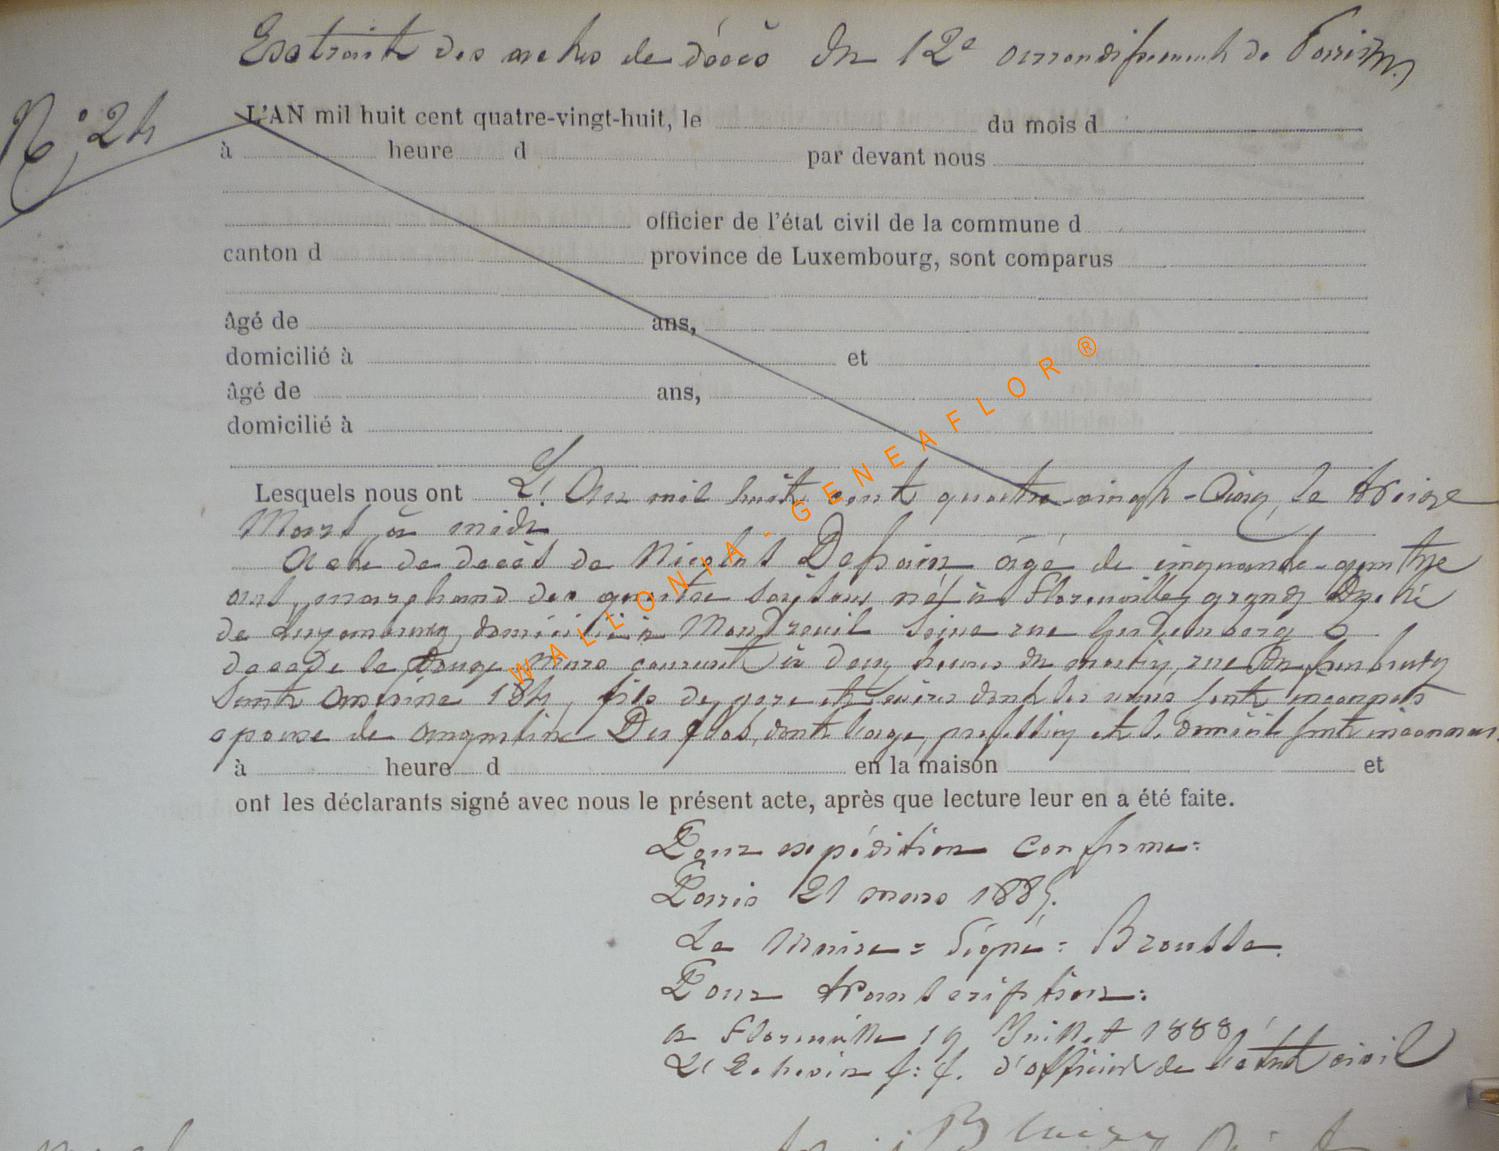 Extrait des actes de décès du 12e arrondissement de Paris
N° 24
L'AN mil huit cent quatre-vingt-huit, le du mois d
à heure d par devant nous
officier de l'état civil de la commune d
canton d province de Luxembourg, sont comparus
âgé de ans,
domicilié à et
âgé de ans,
domicilié à
Lesquels nous ont L'An mil huit cent quatre vingt-Cinq, le treize
Mars, à midi
Acte de décès de Nicolas Depoin âgé de cinquante-quatre
ans, marchand des quatre saisons né à Florenville, grand Duché
de Luxembourg, domicilié à Montreuil Seine rue 6
décédé le Douze Mars courant à deux heures du matin, rue du faubourg
Saint Antoine 184, fils de père et mère dont les noms sont inconnus
epoux de Augustine dont l'age, profession et le domicile sont inconnus
à heure d en la maison et
ont les déclarants signé avec nous le présent acte, après que lecture leur en a été faite.
Pour expédition conforme:
Paris 21 mars 1885.
Le Maire = Signé: Brousse.
Pour transcription:
a Florenville 19 Juillet 1888
L'Echevin f. f. d'officier de l'état civil
WALLONIA-GENEAFLOR®